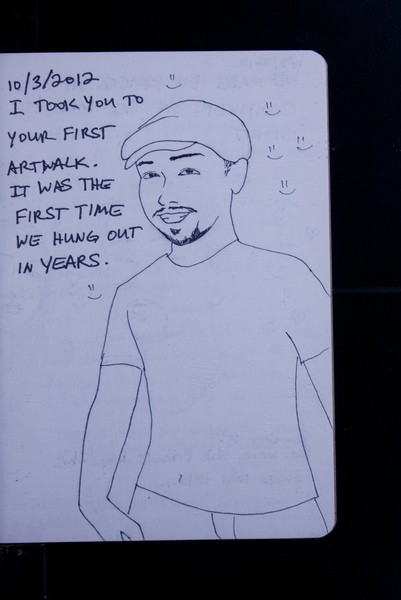 10/3/2012
I TOOK YOU TO
YOUR FIRST
ARTWALK.
IT WAS THE
FIRST TIME
WE HUNG OUT
IN YEARS.